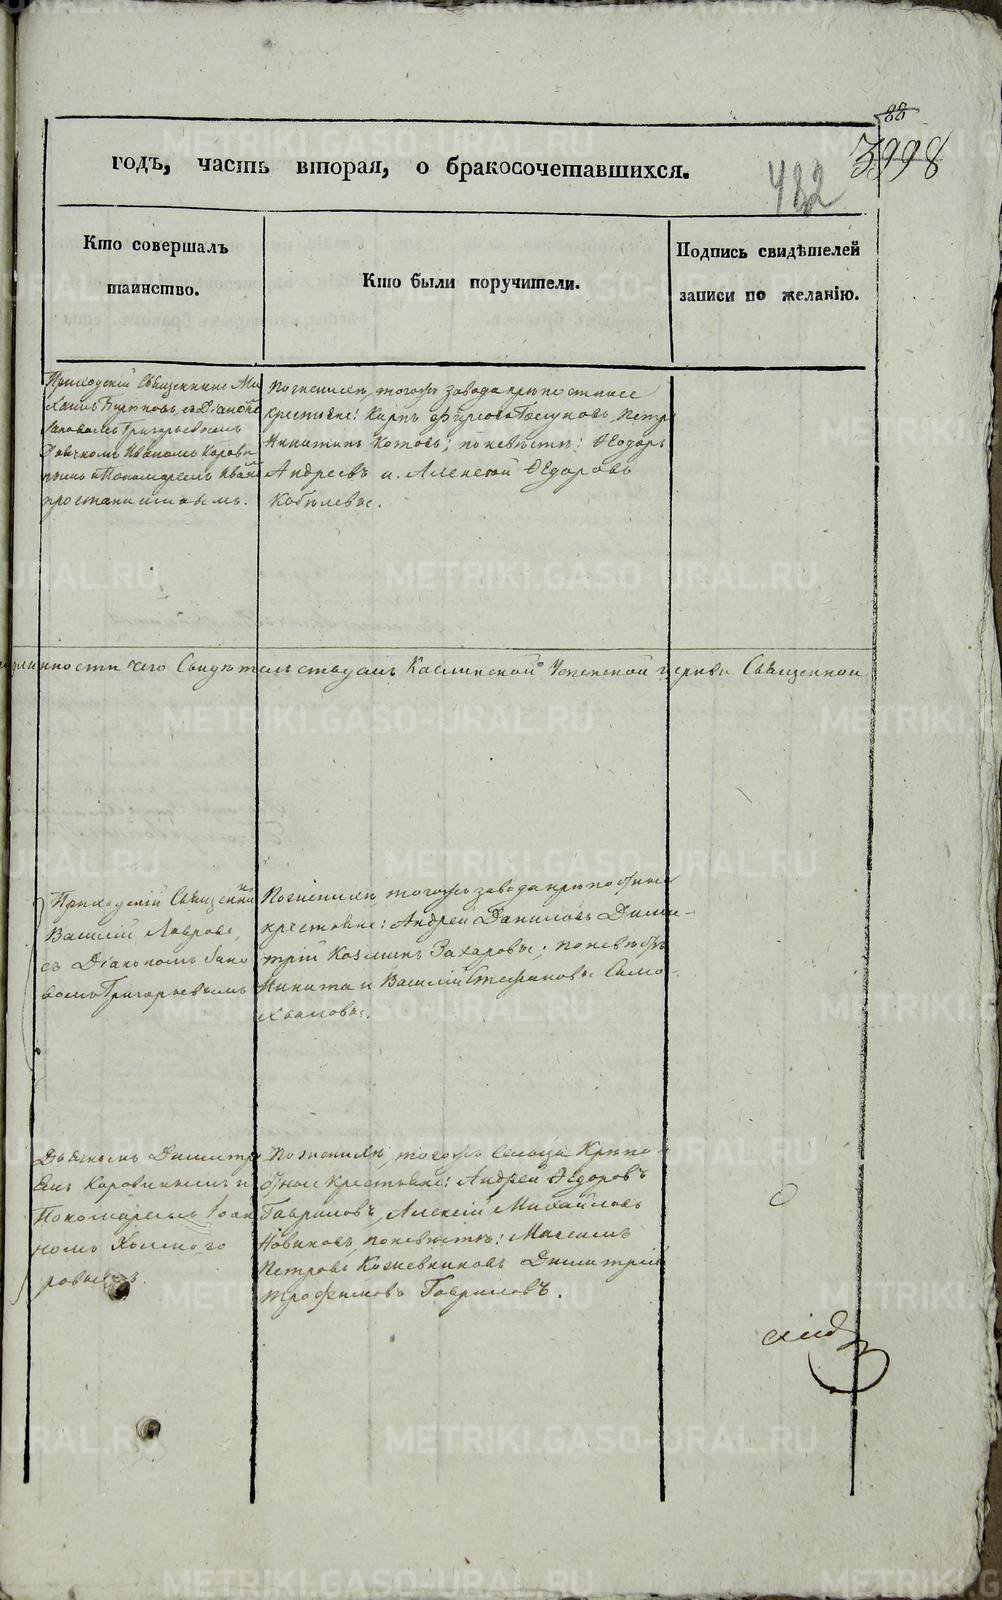 88
3998
482
годъ, часть вторая, о бракосочетавшихся.
Кто совершалъ
таинство.
Кто были поручители.
Подпись свидѣтелей
записи по желанію.
Приходскій Священникъ Ми
хаилъ Бирюковъ, съ Діаконо
Григорьевымъ
Дьячкомъ Иваномъ Корови
нымъ и Пономаремъ Иван
По женихѣ, тогожъ завода крѣпостные
крестьяне: Карпъ Петръ
Никитинъ Котовъ; по невѣстѣ: Ѳеодоръ
Андреевъ и Алексей Ѳедоровъ
Кобелевы.
чего Свидѣтельствуемъ Каслинской Успенской церкви Священной
Приходскій Священни
Василій Лавровъ,
съ Діакономъ Яко
вомъ Григорьевымъ
По женихѣ тогожъ завода крѣпостные
крестьяне: Андрей Даниловъ Дими
трій Козминъ Захаровы; по невѣстѣ
Никита и Василій Стефановы Само
хваловы.
Дьячкомъ Димитрі
емъ Коровинымъ и
Пономаремъ Іоан
номъ Холмого
ровымъ.
По женихѣ, тогожъ Крѣпо
стные крестьяне: Андрей Ѳедоровъ
Гавриловъ, Алексій Михайловъ
Новиковъ, по невѣстѣ: Максимъ
Петровъ Кожевниковъ Димитрій
Трофимовъ Гавриловъ.
METRIKI.GASO-URAL.RU